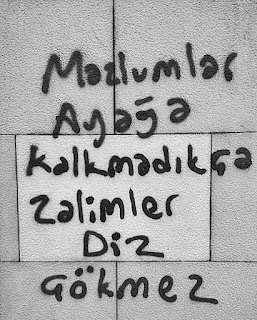 Mazlumlar
Ayağa
Kalkmadıkça
Zalimler
Diz
Gökmez